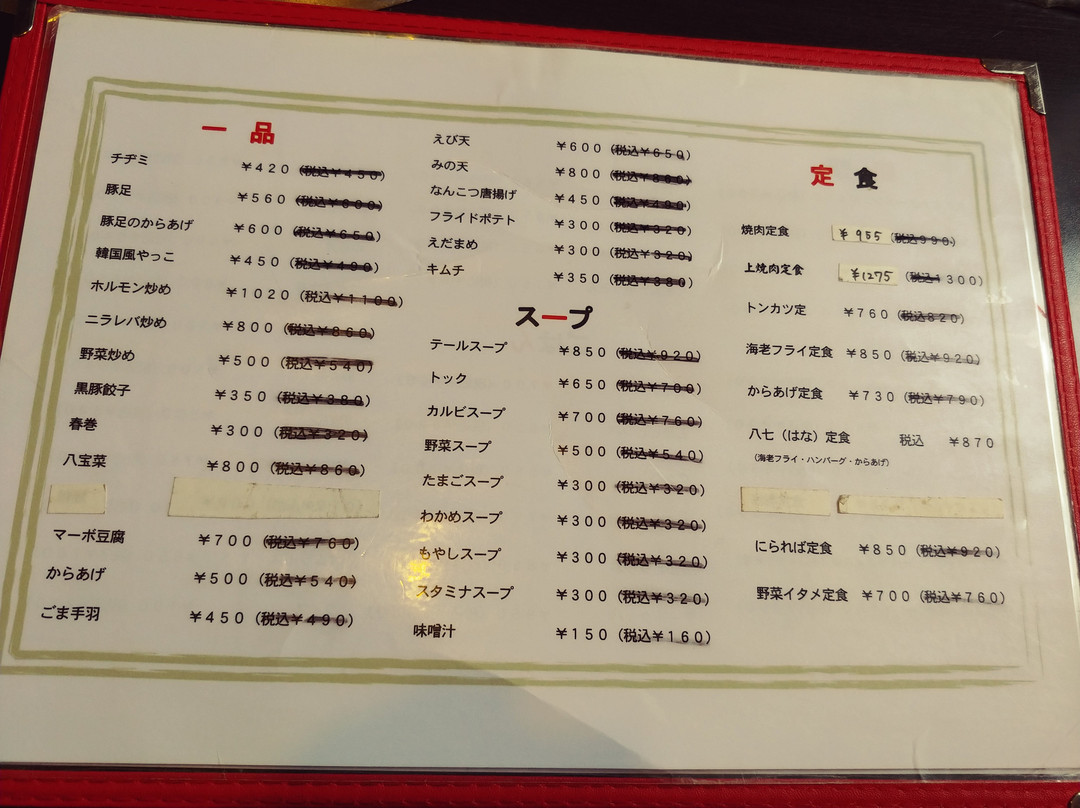 一品
チヂミ ¥420 (税込¥450)
豚足 ¥560 (税込¥600)
豚足のからあげ ¥600 (税込¥650)
韓国風やっこ ¥450 (税込¥490)
ホルモン炒め ¥1020 (税込¥1100)
ニラレバ炒め ¥800 (税込¥860)
野菜炒め ¥500 (税込¥540)
黒豚餃子 ¥350 (税込¥380)
春巻 ¥300 (税込¥320)
八宝菜 ¥800 (税込¥860)
マーボ豆腐 ¥700 (税込¥760)
からあげ ¥500 (税込¥540)
ごま手羽 ¥450 (税込¥490)
えび天 ¥600 (税込¥650)
みの天 ¥800 (税込¥860)
なんこつ唐揚げ ¥450 (税込¥490)
フライドポテト ¥300 (税込¥320)
えだまめ ¥300 (税込¥320)
キムチ ¥350 (税込¥380)
スープ
テールスープ ¥850 (税込¥920)
トック ¥650 (税込¥700)
カルビスープ ¥700 (税込¥760)
野菜スープ ¥500 (税込¥540)
たまごスープ ¥300 (税込¥320)
わかめスープ ¥300 (税込¥320)
もやしスープ ¥300 (税込¥320)
スタミナスープ ¥300 (税込¥320)
味噌汁 ¥150 (税込¥160)
定食
焼肉定食 ¥955 (税込990)
上焼肉定食 ¥1275 (税込1300)
トンカツ定 ¥760 (税込820)
海老フライ定食 ¥850 (税込¥920)
からあげ定食 ¥730 (税込¥790)
八七(はな)定食 税込 ¥870
(海老フライ・ハンバーグ・からあげ)
にられば定食 ¥850 (税込¥920)
野菜イタメ定食 ¥700 (税込¥760)